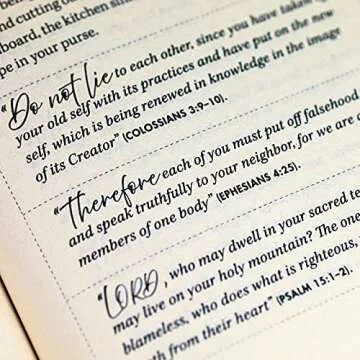 and cutting ou
board, the kitchen sin
pe in your purse.
"Do not lie to each other, since you have taken
your old self with its practices and have put on the new
self, which is being renewed in knowledge in the image
of its Creator" (COLOSSIANS 3:9-10).
"Therefore each of you must put off falsehood
and speak truthfully to your neighbor, for we are a
members of one body" (EPHESIANS 4:25).
"LORD, who may dwell in your sacred te
may live on your holy mountain? The one
blameless, who does what is righteous,
th from their heart" (PSALM 15:1-2).